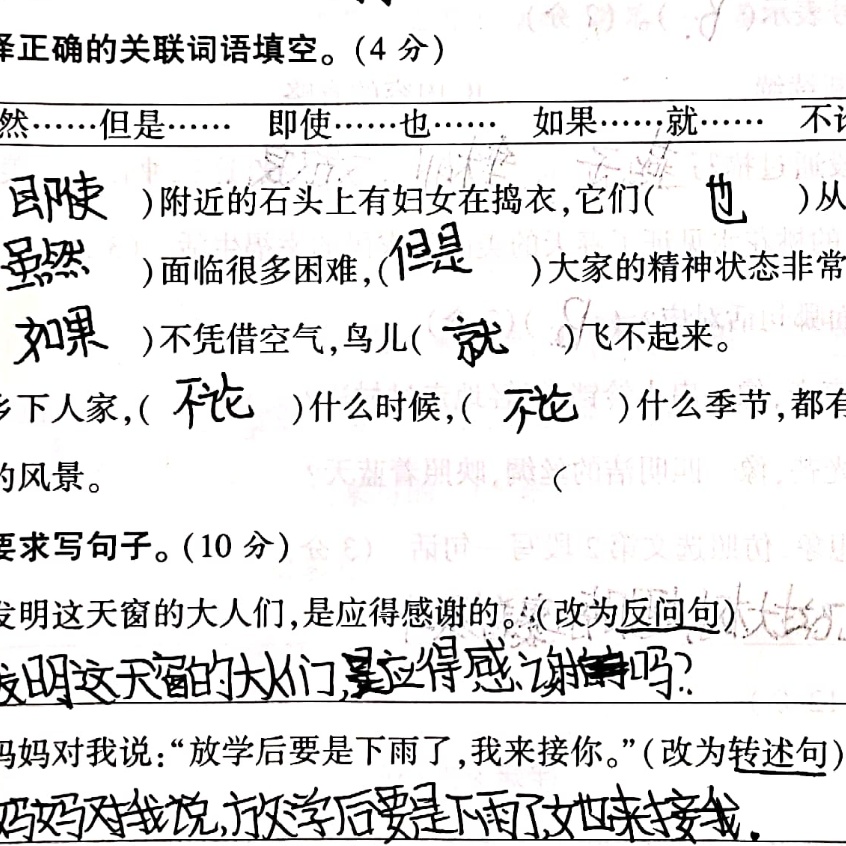 择正确的关联词语填空。(4 分)
然……但是…… 即使……也…… 如果……就…… 不论
即使 )附近的石头上有妇女在捣衣,它们( 也 )从
虽然 )面临很多困难,(但是 )大家的精神状态非常
如果 )不凭借空气,鸟儿( 就 )飞不起来。
乡下人家,( 不论 )什么时候,( 不论 )什么季节,都有
的风景。 (
要求写句子。(10 分)
发明这天窗的大人们,是应得感谢的。(改为反问句)
发明这天窗的大人们,是应得感谢吗?
妈妈对我说:“放学后要是下雨了,我来接你。”(改为转述句)
妈妈对我说,放学后要是下雨了她来接我.